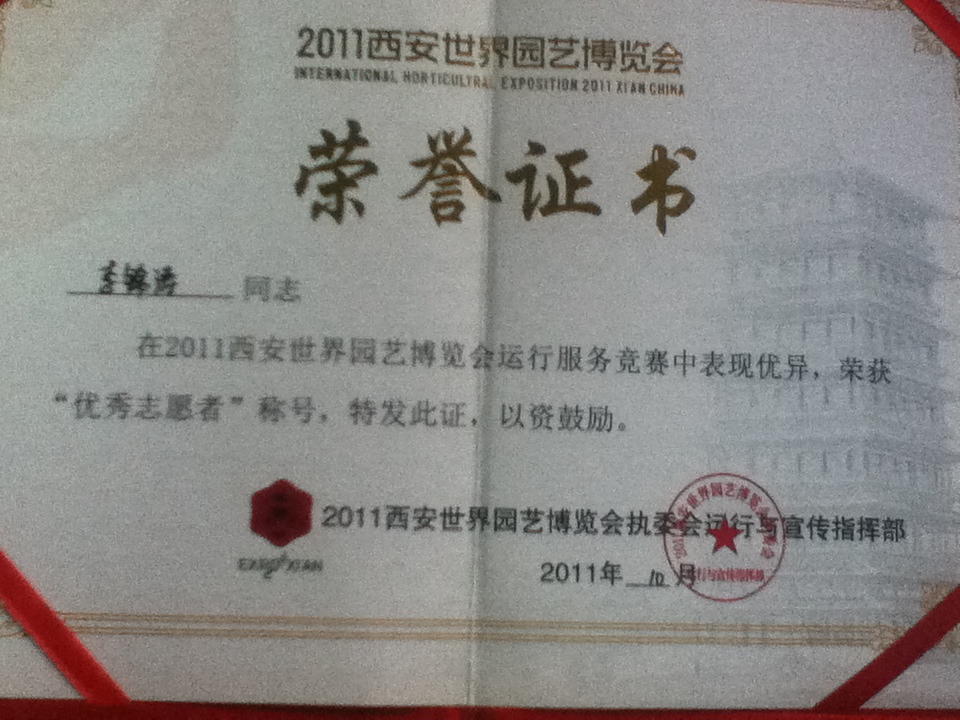 2011西安世界园艺博览会
INTERNATIONAL HORTICULTRAL EXPOSITION 2011 XI'AN CHINA
荣誉证书
同志
在2011西安世界园艺博览会运行服务竞赛中表现优异，荣获
“优秀志愿者”称号，特发此证，以资鼓励。
2011西安世界园艺博览会执委会运行与宣传指挥部
EXPO XIAN
2011年 10 月
运行与宣传指挥部